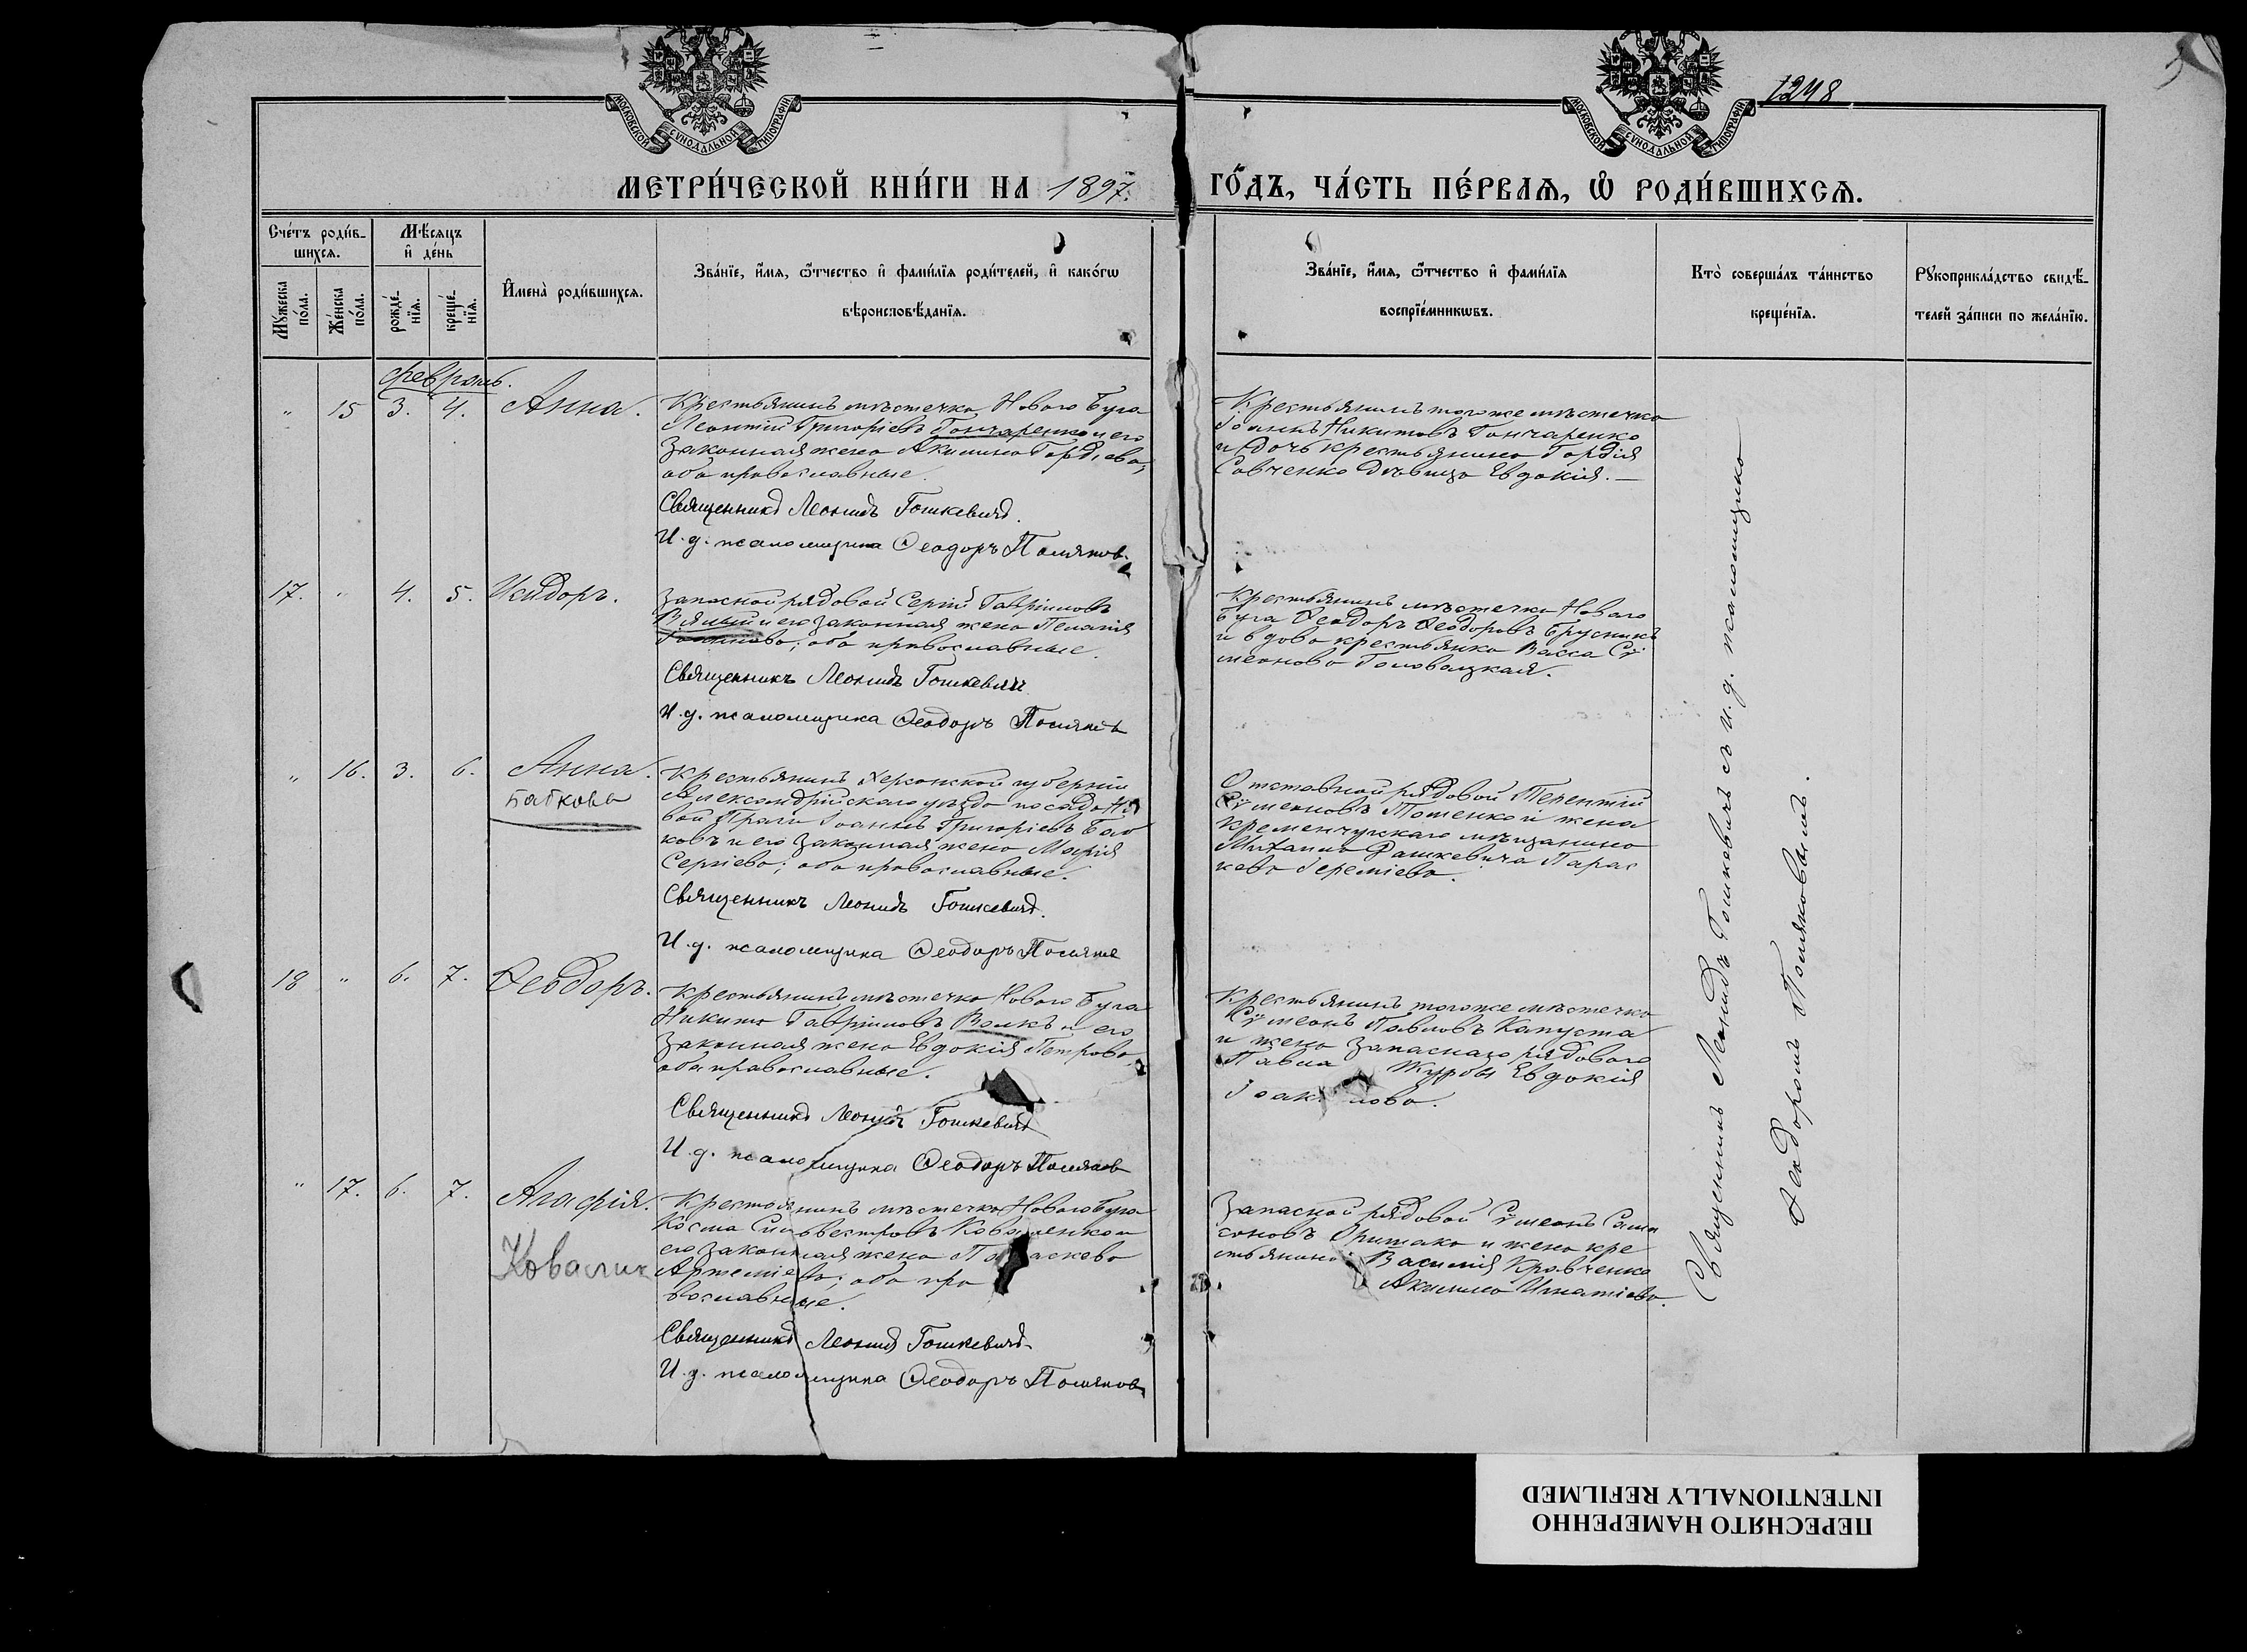 МОСКОВСКОЙ СѴНОДАЛЬНОЙ ТИПОГРАФІИ
МОСКОВСКОЙ СѴНОДАЛЬНОЙ ТИПОГРАФІИ
1248
МЕТРИ́ЧЕСКОЙ КНИ́ГИ НА 1897.
ГО́ДЪ, ЧА́СТЬ ПЕ́РВАѦ, Ѡ҆ РОДИ́ВШИХСѦ.
Сче́тъ роди́в-
шихсѧ.
Мѣ́сѧцъ
и҆ де́нь
Мꙋ́жеска
по́ла.
Же́нска
по́ла.
рожде́-
нїѧ.
креще́-
нїѧ.
И҆мена̀ роди́вшихсѧ.
Зва́нїе, и҆́мѧ, ѻ҆́тчество и҆ фами́лїѧ роди́телей, и҆ како́гѡ
вѣроисповѣ́данїѧ.
Зва́нїе, и҆́мѧ, ѻ҆́тчество и҆ фами́лїѧ
воспрїе́мникѡвъ.
Кто̀ соверша́лъ та́инство
креще́нїѧ.
Рꙋкоприкла́дство свидѣ́-
телей за́писи по жела́нїю.
февраль.
„ 15 3. 4. Анна.
Крестьянинъ мѣстечка Новаго Буга
Леонтій Григоріевъ Гончаренко и его
законная жена Акилина Гордіева,
оба православные.
Священникъ Леонидъ Гошкевичъ.
И. д. псаломщика Ѳеодоръ Поляковъ
Крестьянинъ того же мѣстечка
Іоаннъ Никитовъ Гончаренко
и дочь крестьянина Гордія
Савченко дѣвица Евдокія.—
17. „ 4. 5. Исидоръ.
Запасной рядовой Сергій Гавріиловъ
и его законная жена Пелагія
оба православные.
Священникъ Леонидъ Гошкевичъ
И. д. псаломщика Ѳеодоръ Поляковъ
Крестьянинъ мѣстечка Новаго
Буга Ѳеодоръ Ѳеодоровъ Брусникъ
и вдова крестьянка Васса Сѵ
меонова Головацкая.
„ 16. 3. 6. Анна.
Баткова
Крестьянинъ Херсонской губерніи
Александрійскаго уѣзда посада Но
вой Праги Іоаннъ Григоріевъ Бат
ковъ и его законная жена Марія
Сергіева; оба православные.
Священникъ Леонидъ Гошкевичъ.
И. д. псаломщика Ѳеодоръ Поляковъ
Отставной рядовой Терентій
Сѵмеоновъ Потенко и жена
кременчугскаго мѣщанина
Михаила Дашкевича Парас
кева Іереміева.
18 „ 6. 7. Ѳеодоръ.
Крестьянинъ мѣстечка Новаго Буга
Никита Гавріиловъ Волкъ и его
законная жена Евдокія Петрова
оба православные.
Священникъ Леонидъ Гошкевичъ
И. д. псаломщика Ѳеодоръ Поляковъ
Крестьянинъ того же мѣстечка
Сѵмеонъ Павловъ Капуста
и жена запаснаго рядового
Павла Журовы Евдокія
„ 17. 6. 7. Агафія.
Крестьянинъ мѣстечка Новаго Буга
Косма Сильвестровъ Коваленко и
его законная жена Параскева
Артеміева; оба пра
вославные.
Священникъ Леонидъ Гошкевичъ
И. д. псаломщика Ѳеодоръ Поляковъ
Запасной рядовой Сѵмеонъ Самп
соновъ Притака и жена кре
стьянина Василія Кравченко
Акилина Игнатіева.
Священникъ Леонидъ Гошкевичъ съ и. д. псаломщика
Ѳеодоромъ Поляковымъ.
ПЕРЕСНЯТО НАМЕРЕННО
INTENTIONALLY REFILMED